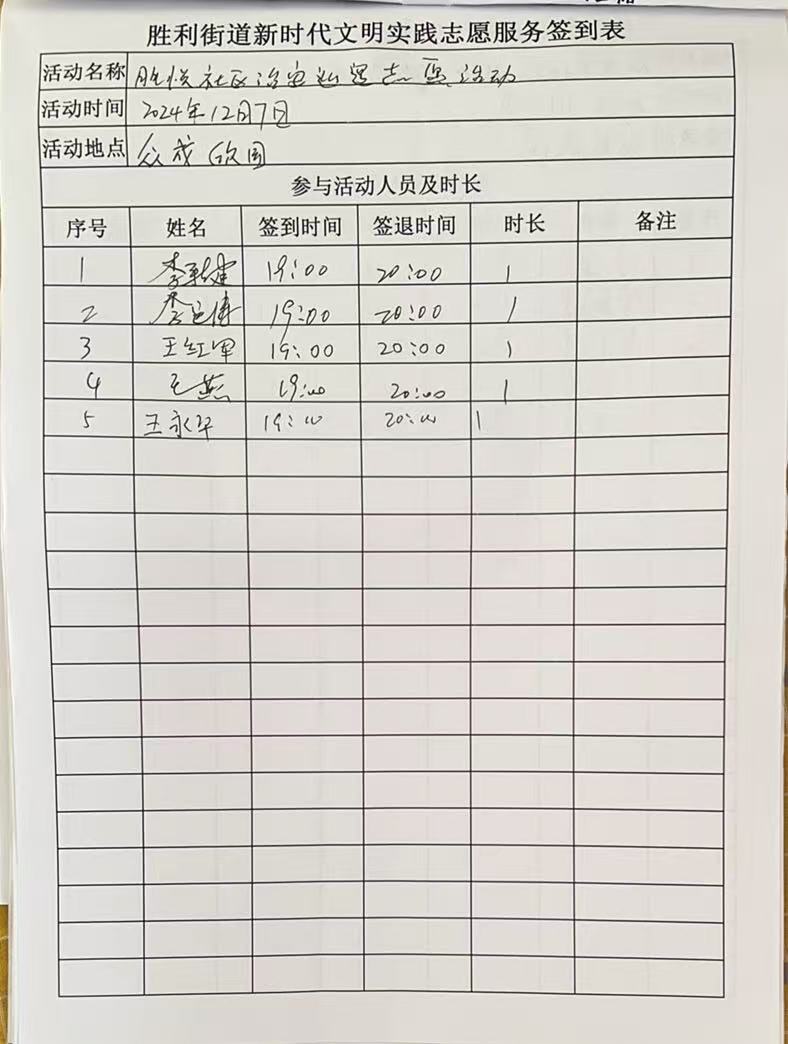 胜利街道新时代文明实践志愿服务签到表
活动名称 胜悦社区治安巡逻志愿活动
活动时间 2024年12月7日
活动地点 众成欣园
参与活动人员及时长
序号 姓名 签到时间 签退时间 时长 备注
1 李 19:00 20:00 1
2 李 19:00 20:00 1
3 王红军 19:00 20:00 1
4 王燕 19:00 20:00 1
5 王永平 19:00 20:00 1